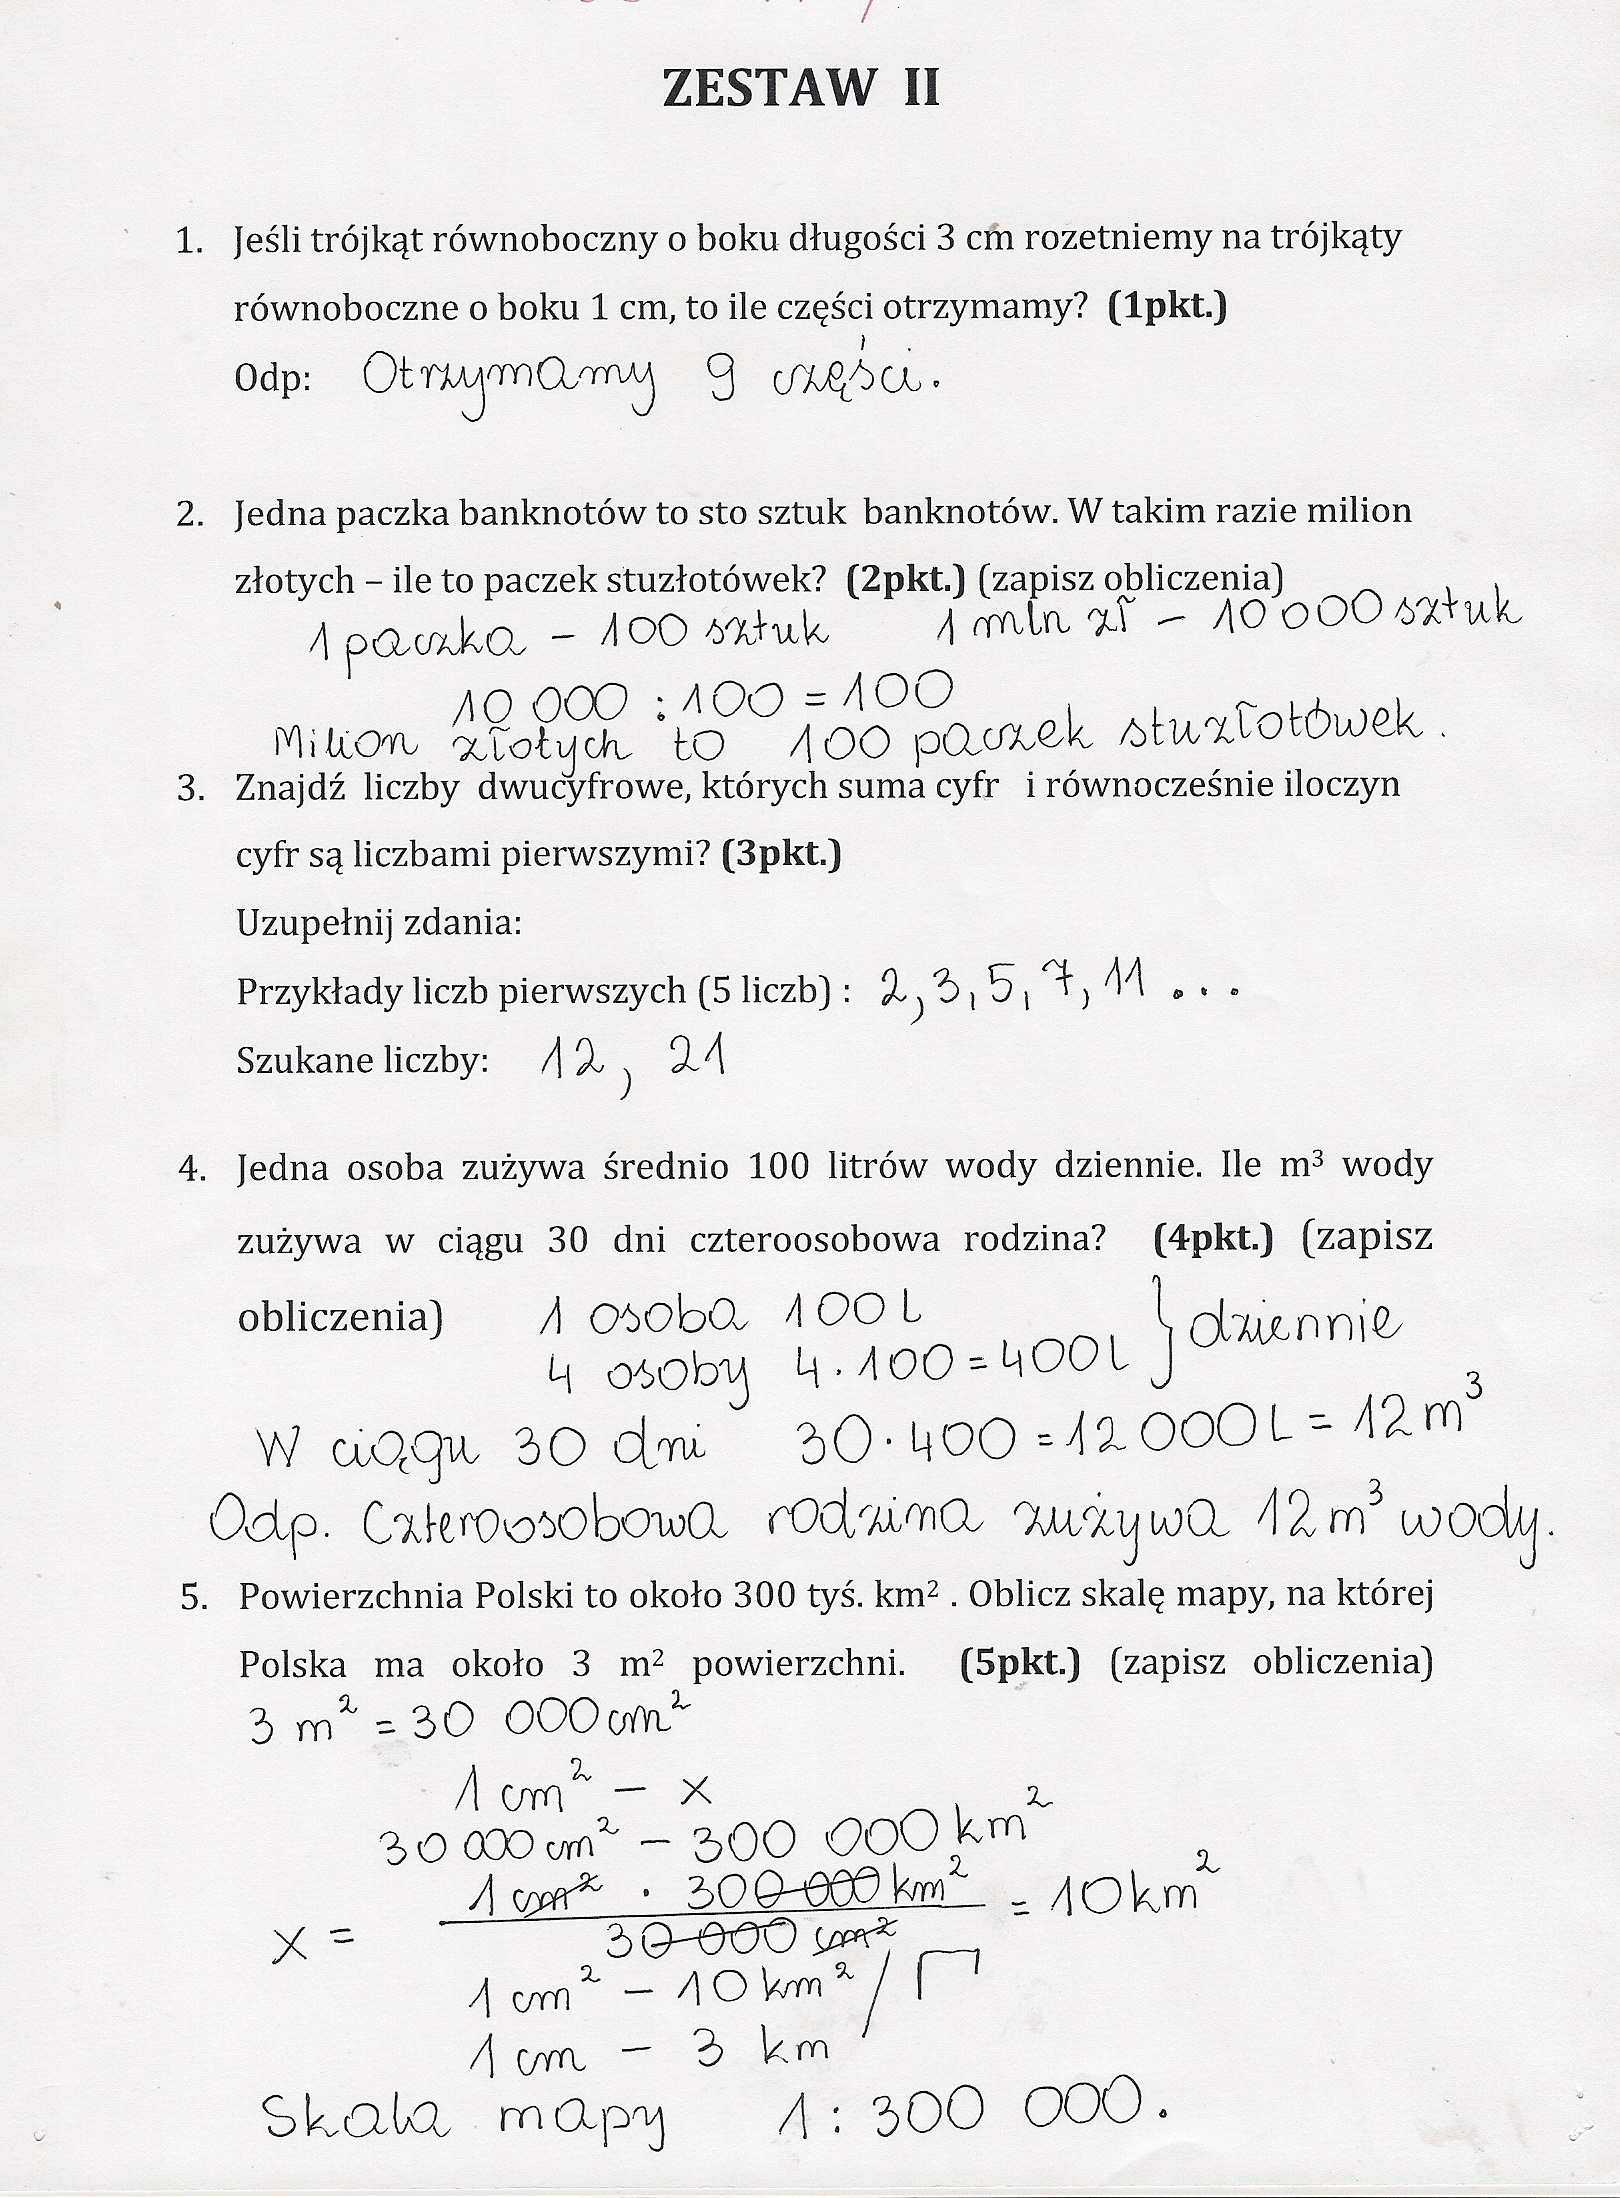 ZESTAW II
1. Jeśli trójkąt równoboczny o boku długości 3 cm rozetniemy na trójkąty
równoboczne o boku 1 cm, to ile części otrzymamy? (1pkt.)
Odp: Otrzymamy 9 części.
2. Jedna paczka banknotów to sto sztuk banknotów. W takim razie milion
złotych – ile to paczek stuzłotówek? (2pkt.) (zapisz obliczenia)
1 paczka – 100 sztuk 1 mln zł – 10 000 sztuk
10 000 : 100 = 100
Milion złotych to 100 paczek stuzłotówek.
3. Znajdź liczby dwucyfrowe, których suma cyfr i równocześnie iloczyn
cyfr są liczbami pierwszymi? (3pkt.)
Uzupełnij zdania:
Przykłady liczb pierwszych (5 liczb) : 2, 3, 5, 7, 11 ...
Szukane liczby: 12, 21
4. Jedna osoba zużywa średnio 100 litrów wody dziennie. Ile m³ wody
zużywa w ciągu 30 dni czteroosobowa rodzina? (4pkt.) (zapisz
obliczenia) 1 osoba 100 l
4 osoby 4 · 100 = 400 l } dziennie
W ciągu 30 dni 30 · 400 = 12 000 l = 12 m³
Odp. Czteroosobowa rodzina zużywa 12 m³ wody.
5. Powierzchnia Polski to około 300 tyś. km² . Oblicz skalę mapy, na której
Polska ma około 3 m² powierzchni. (5pkt.) (zapisz obliczenia)
3 m² = 30 000 cm²
1 cm² – x
30 000 cm² – 300 000 km²
1 cm² · 300 000 km²
x = = 10 km²
30 000 cm²
1 cm² – 10 km² / √
1 cm – 3 km
Skala mapy 1 : 300 000.